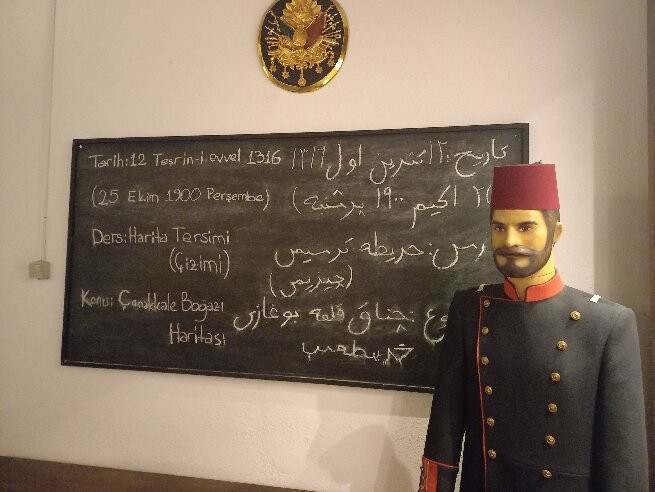 Tarih:12 Teşrin-i evvel 1316
(25 Ekim 1900 Perşembe)
Ders:Harita Tersimi
(Çizimi)
Konu: Çanakkale Boğazı
Haritası
تاريخ: ١٢ تشرين اول ١٣١٦
اكيم ١٩٠٠ پرشنبه)
درس: خريطه ترسيمى
(چيزيمى)
چناق قلعه بوغازى